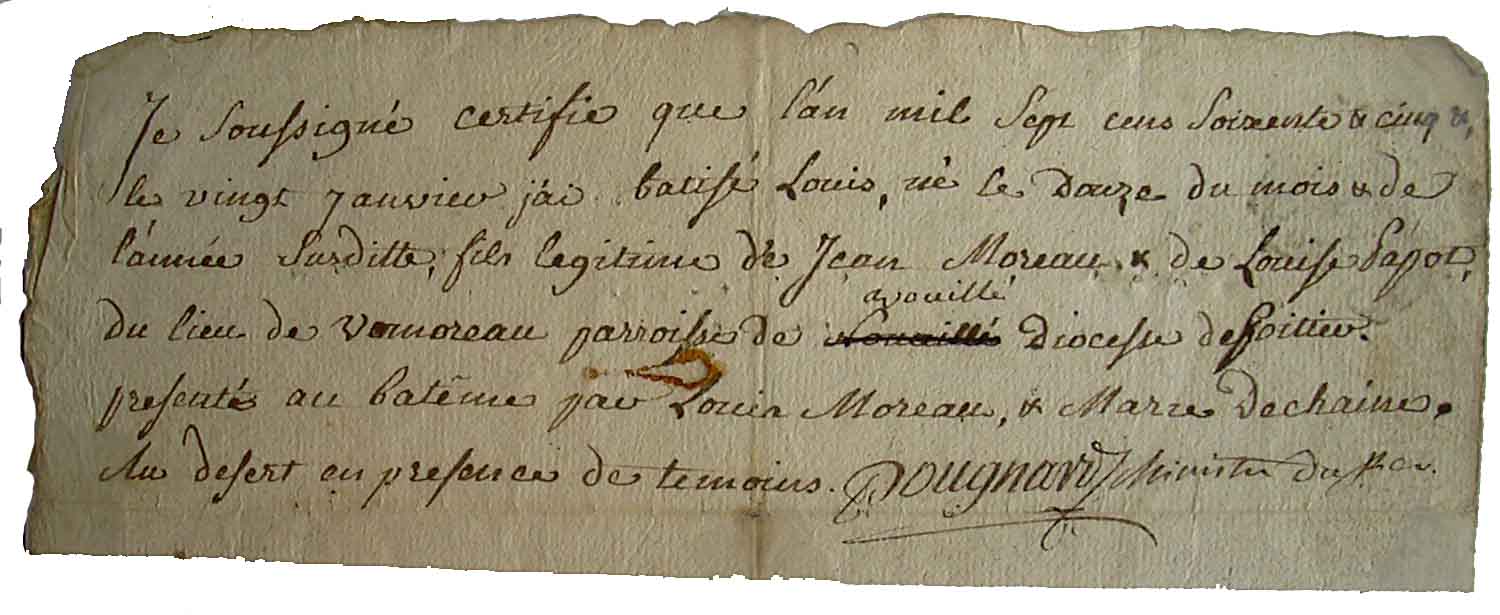 Je Soussigné certifie que l'an mil Sept cens Soixente & cinq &,
le vingt Janvier j'ai batisé Louis, né le douze du mois & de
l'année Susditte, fils legitime de Jean Moreau & de Louise Papot,
avouillé
du lieu de Vomoreau parroisse de Nouaillé Diocesse de Poitier.
presenté au batême par Louis Moreau, & Marie Dechaine.
Au desert en presence de temoins. Pougnard Ministre du